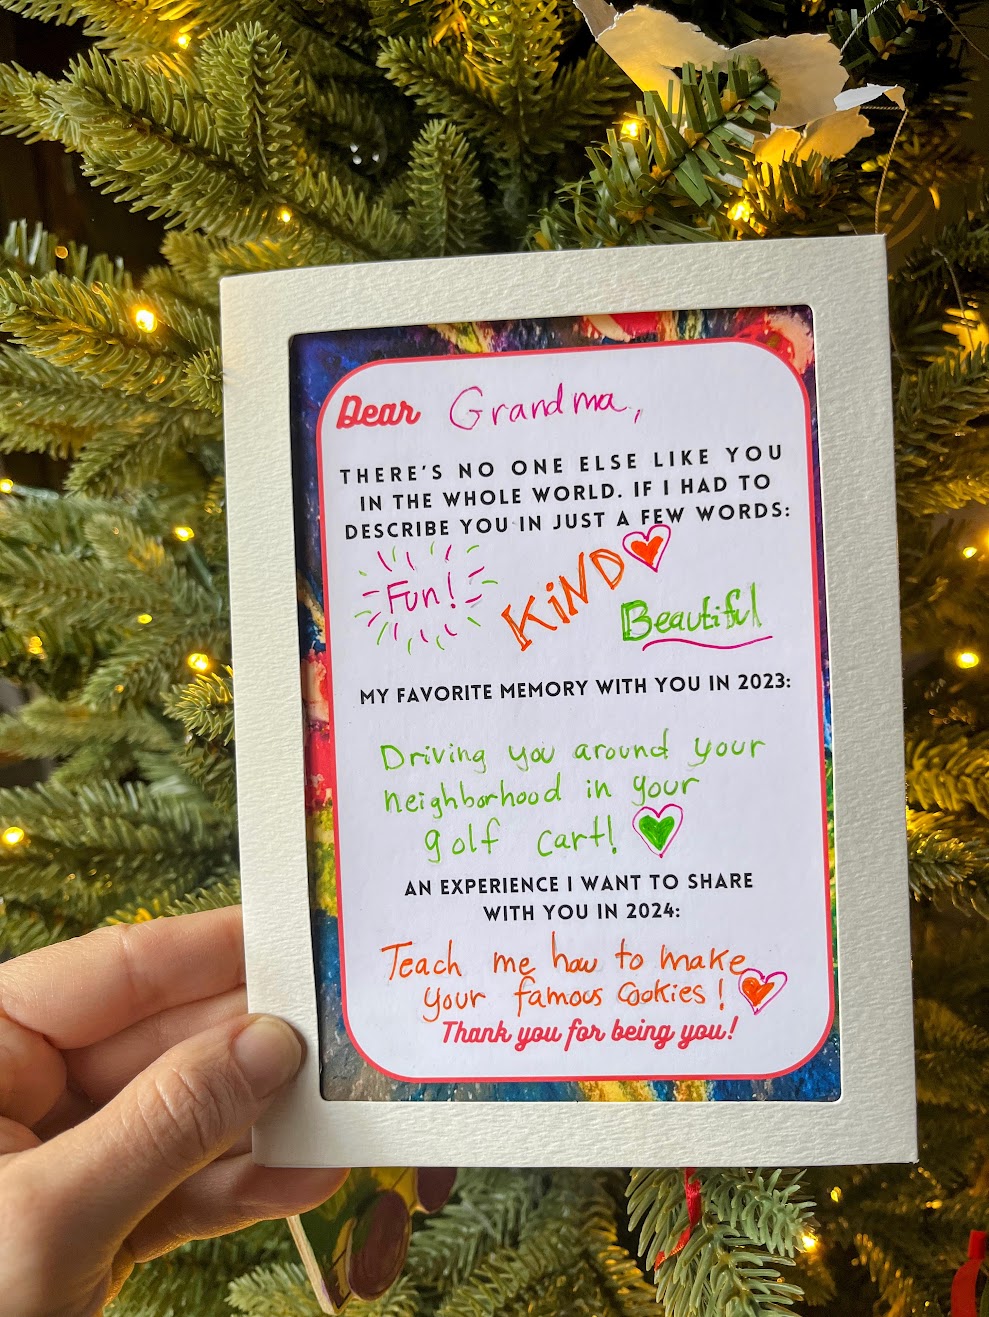 Dear Grandma,
THERE'S NO ONE ELSE LIKE YOU
IN THE WHOLE WORLD. IF I HAD TO
DESCRIBE YOU IN JUST A FEW WORDS:
Fun! KiND Beautiful
MY FAVORITE MEMORY WITH YOU IN 2023:
Driving you around your
neighborhood in your
golf cart!
AN EXPERIENCE I WANT TO SHARE
WITH YOU IN 2024:
Teach me how to make
your famous cookies!
Thank you for being you!